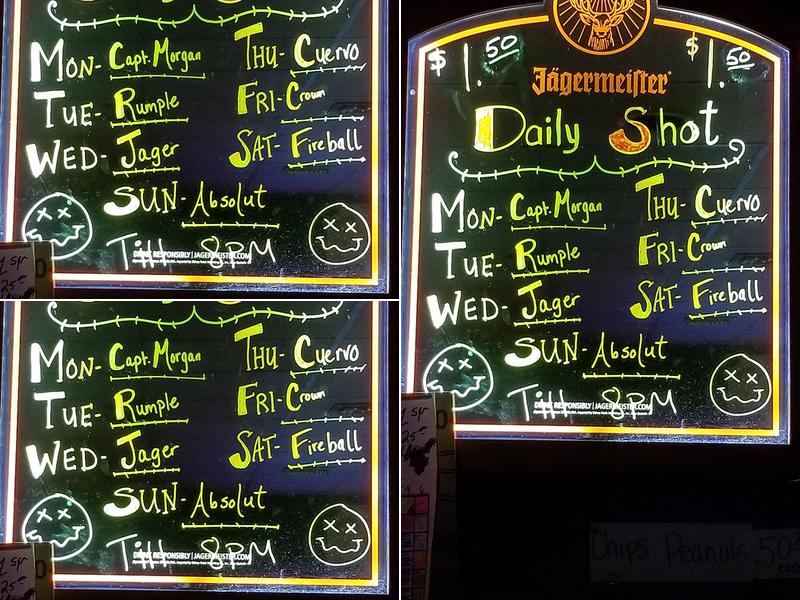 MON- Capt. Morgan THU- Cuervo
TUE- Rumple FRI- Crown
WED- Jager SAT- Fireball
SUN- Absolut
Till 8PM
DRINK RESPONSIBLY | JAGERMEISTER.COM
MON- Capt. Morgan THU- Cuervo
TUE- Rumple FRI- Crown
WED- Jager SAT- Fireball
SUN- Absolut
Till 8PM
DRINK RESPONSIBLY | JAGERMEISTER.COM
$1.50 $1.50
Jägermeister
Daily Shot
MON- Capt. Morgan THU- Cuervo
TUE- Rumple FRI- Crown
WED- Jager SAT- Fireball
SUN- Absolut
Till 8PM
DRINK RESPONSIBLY | JAGERMEISTER.COM
Chips, Peanuts .50¢
each